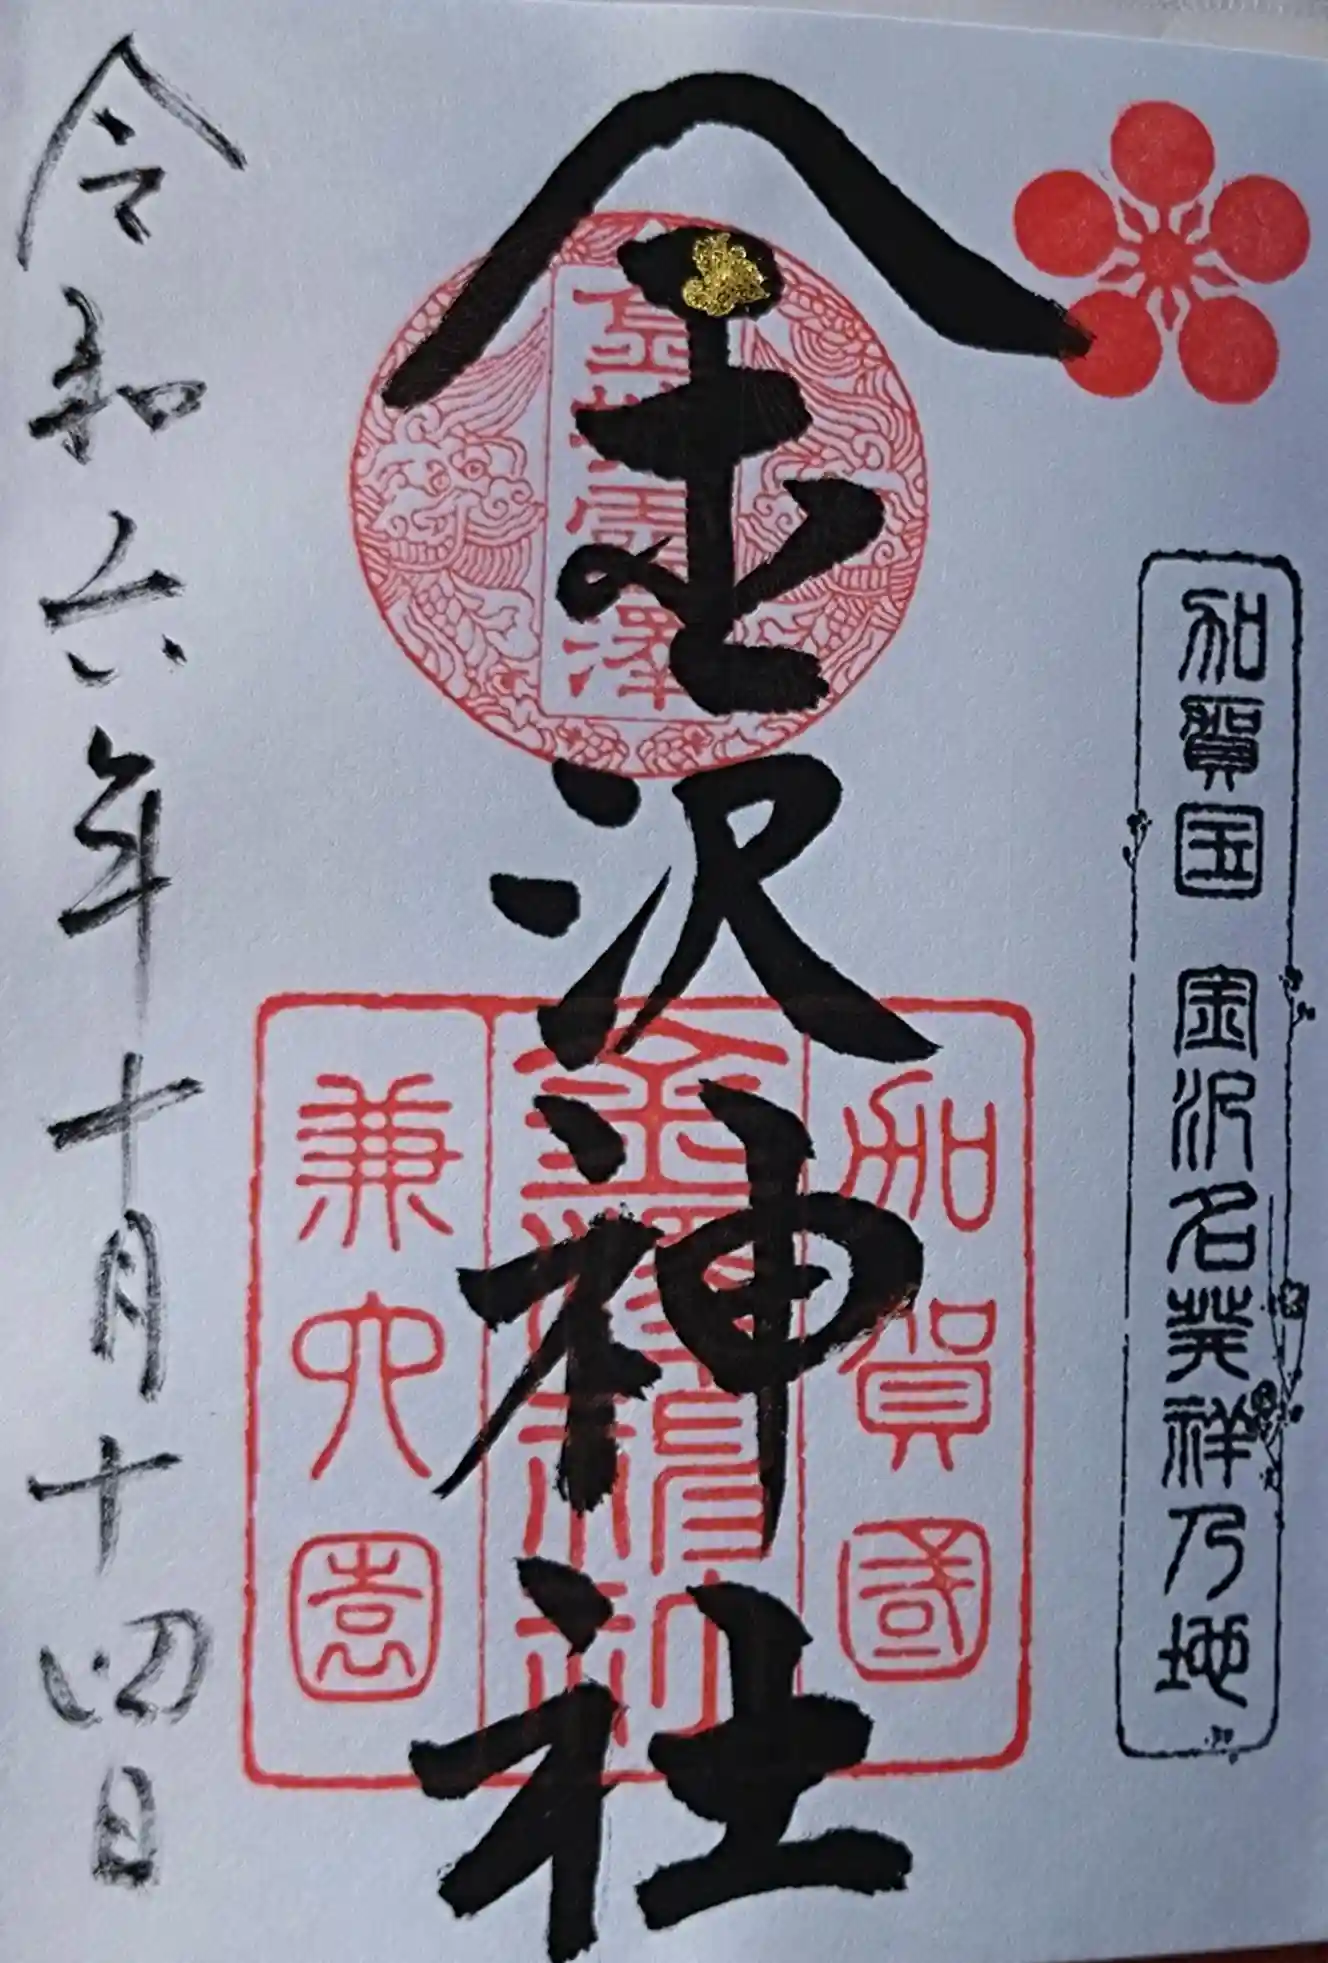 加賀国 金沢名発祥乃地
金沢神社
加賀國
兼六園
令和六年十月十四日